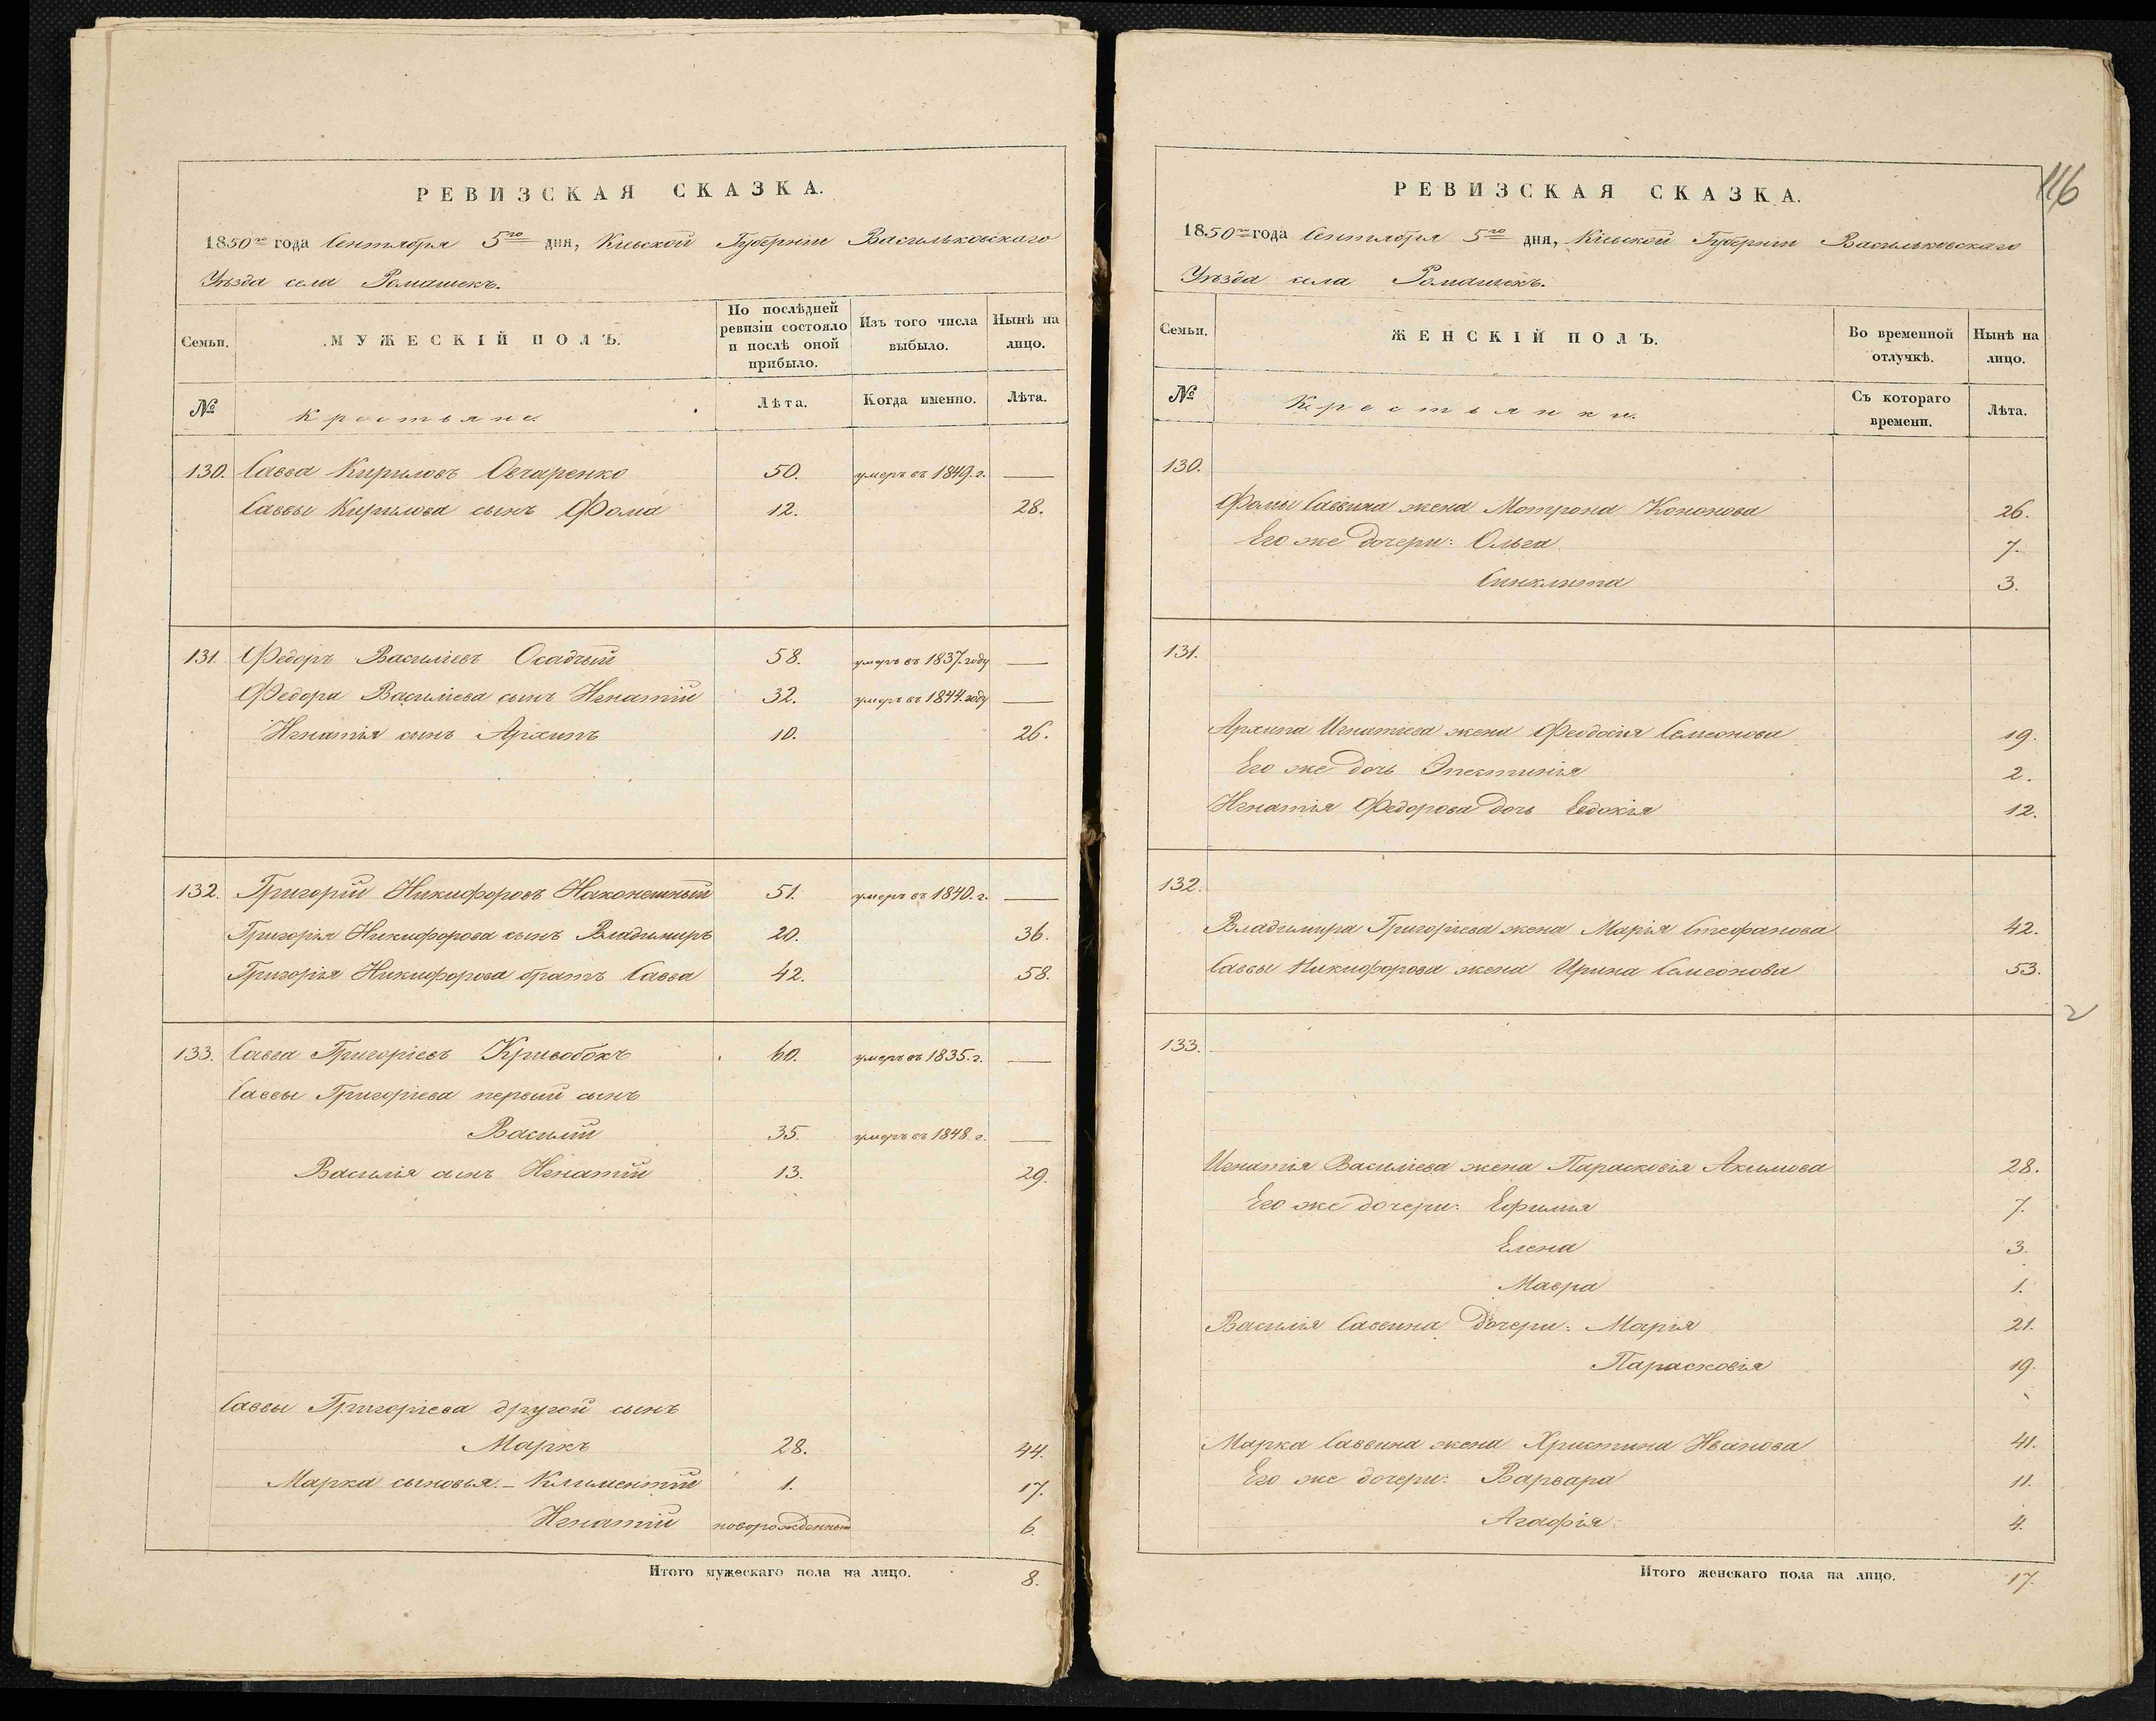 РЕВИЗСКАЯ СКАЗКА.
1850го года Сентября 5го дня, Киевской Губернии Васильковскаго
Уѣзда села Ромашекъ.
Семьи.
МУЖЕСКІЙ ПОЛЪ.
По послѣдней ревизіи состояло и послѣ оной прибыло.
Изъ того числа выбыло.
Нынѣ на лицо.
№
Крестьяне.
Лѣта.
Когда именно.
Лѣта.
130. Савва Кириловъ Овчаренко 50. умеръ въ 1849. г. —
Саввы Кирилова сынъ Фома 12. 28.
131. Федоръ Василіевъ Осадчый 58. умеръ въ 1837. году —
Федора Василіева сынъ Игнатій 32. умеръ въ 1844. году —
Игнатія сынъ Архипъ 10. 26.
132. Григорій Никифоровъ Наконешный 51. умеръ въ 1840. г. —
Григорія Никифорова сынъ Владимиръ 20. 36.
Григорія Никифорова братъ Савва 42. 58.
133. Савва Григоріевъ Кривобокъ 60. умеръ въ 1835. г. —
Саввы Григоріева первый сынъ
Василій 35. умеръ въ 1848. г. —
Василія сынъ Игнатій 13. 29.
Саввы Григоріева другой сынъ
Маркъ 28. 44.
Марка сыновья. – Климентій 1. 17.
Игнатій новорожденный 6.
Итого мужескаго пола на лицо. 8.
116
РЕВИЗСКАЯ СКАЗКА.
1850го года Сентября 5го дня, Киевской Губернии Васильковскаго
Уѣзда села Ромашекъ.
Семьи.
ЖЕНСКІЙ ПОЛЪ.
Во временной отлучкѣ.
Нынѣ на лицо.
№
Крестьянки.
Съ котораго времени.
Лѣта.
130.
Фомы Саввина жена Мотрона Кононова 26.
Его же дочери: Ольга 7.
Синклита 3.
131.
Архипа Игнатіева жена Феодосія Семионова 19.
Его же дочь Эпестинія 2.
Игнатія Федорова дочь Евдокія 12.
132.
Владимира Григоріева жена Марія Стефанова 42.
Саввы Никифорова жена Ирина Семионова 53.
2
133.
Игнатія Василіева жена Парасковія Акимова 28.
Его же дочери: Ефимія 7.
Елена 3.
Мавра 1.
Василія Саввина дочери: Марія 21.
Парасковія 19.
Марка Саввина жена Христина Иванова 41.
Его же дочери: Варвара 11.
Агафія 4.
Итого женскаго пола на лицо. 17.